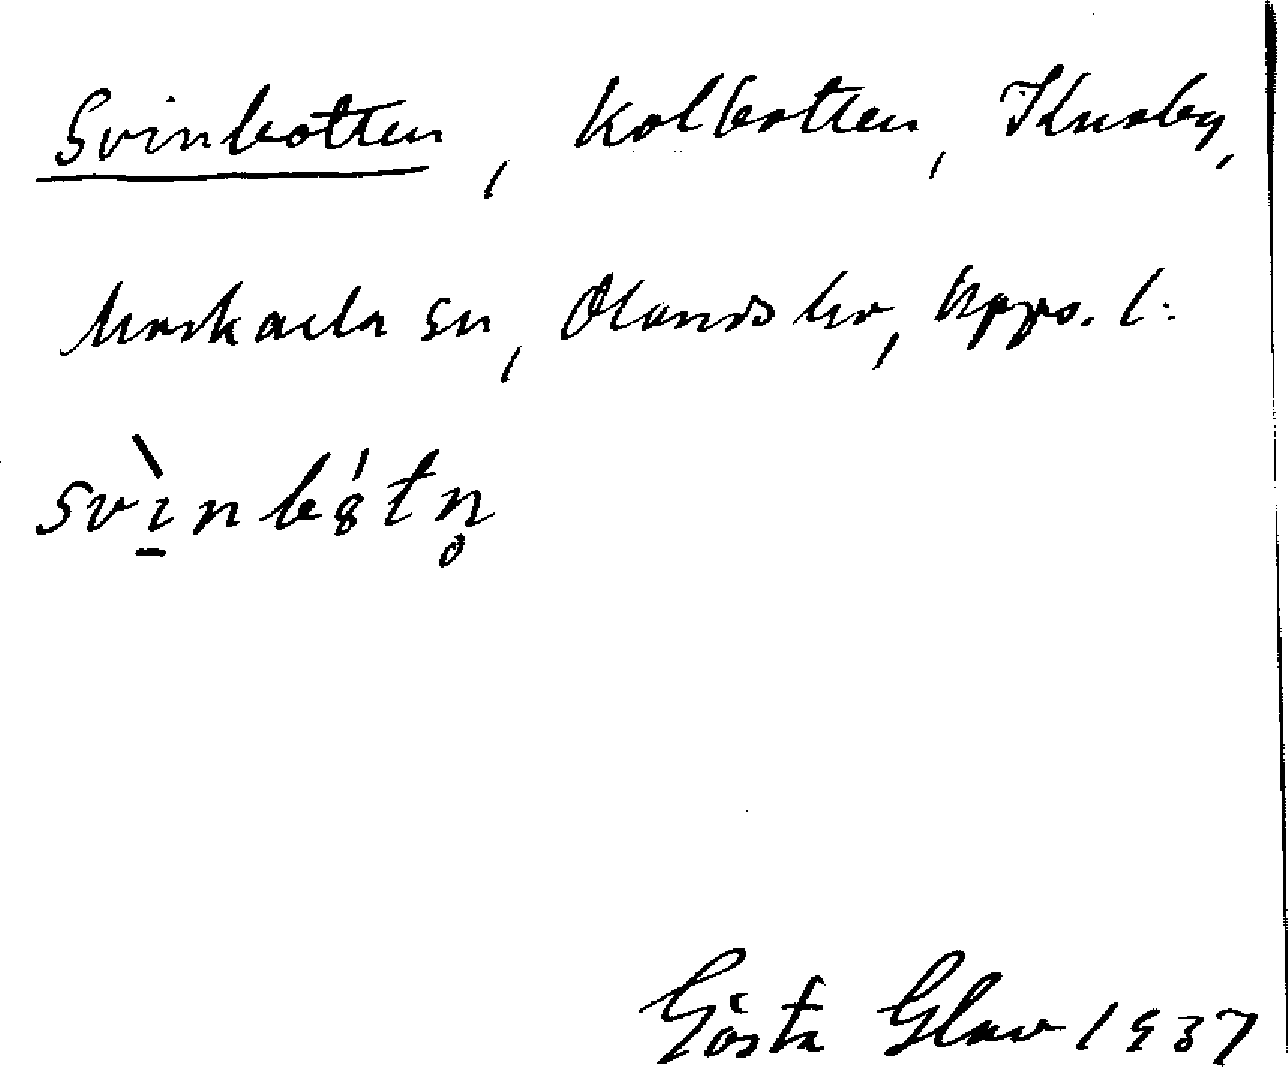 Svinbotten, Kolbotten, Knaby,
Morkarla sn, Olands hd, Upps. l:
svìnbåtn̥
Gösta Glav 1937